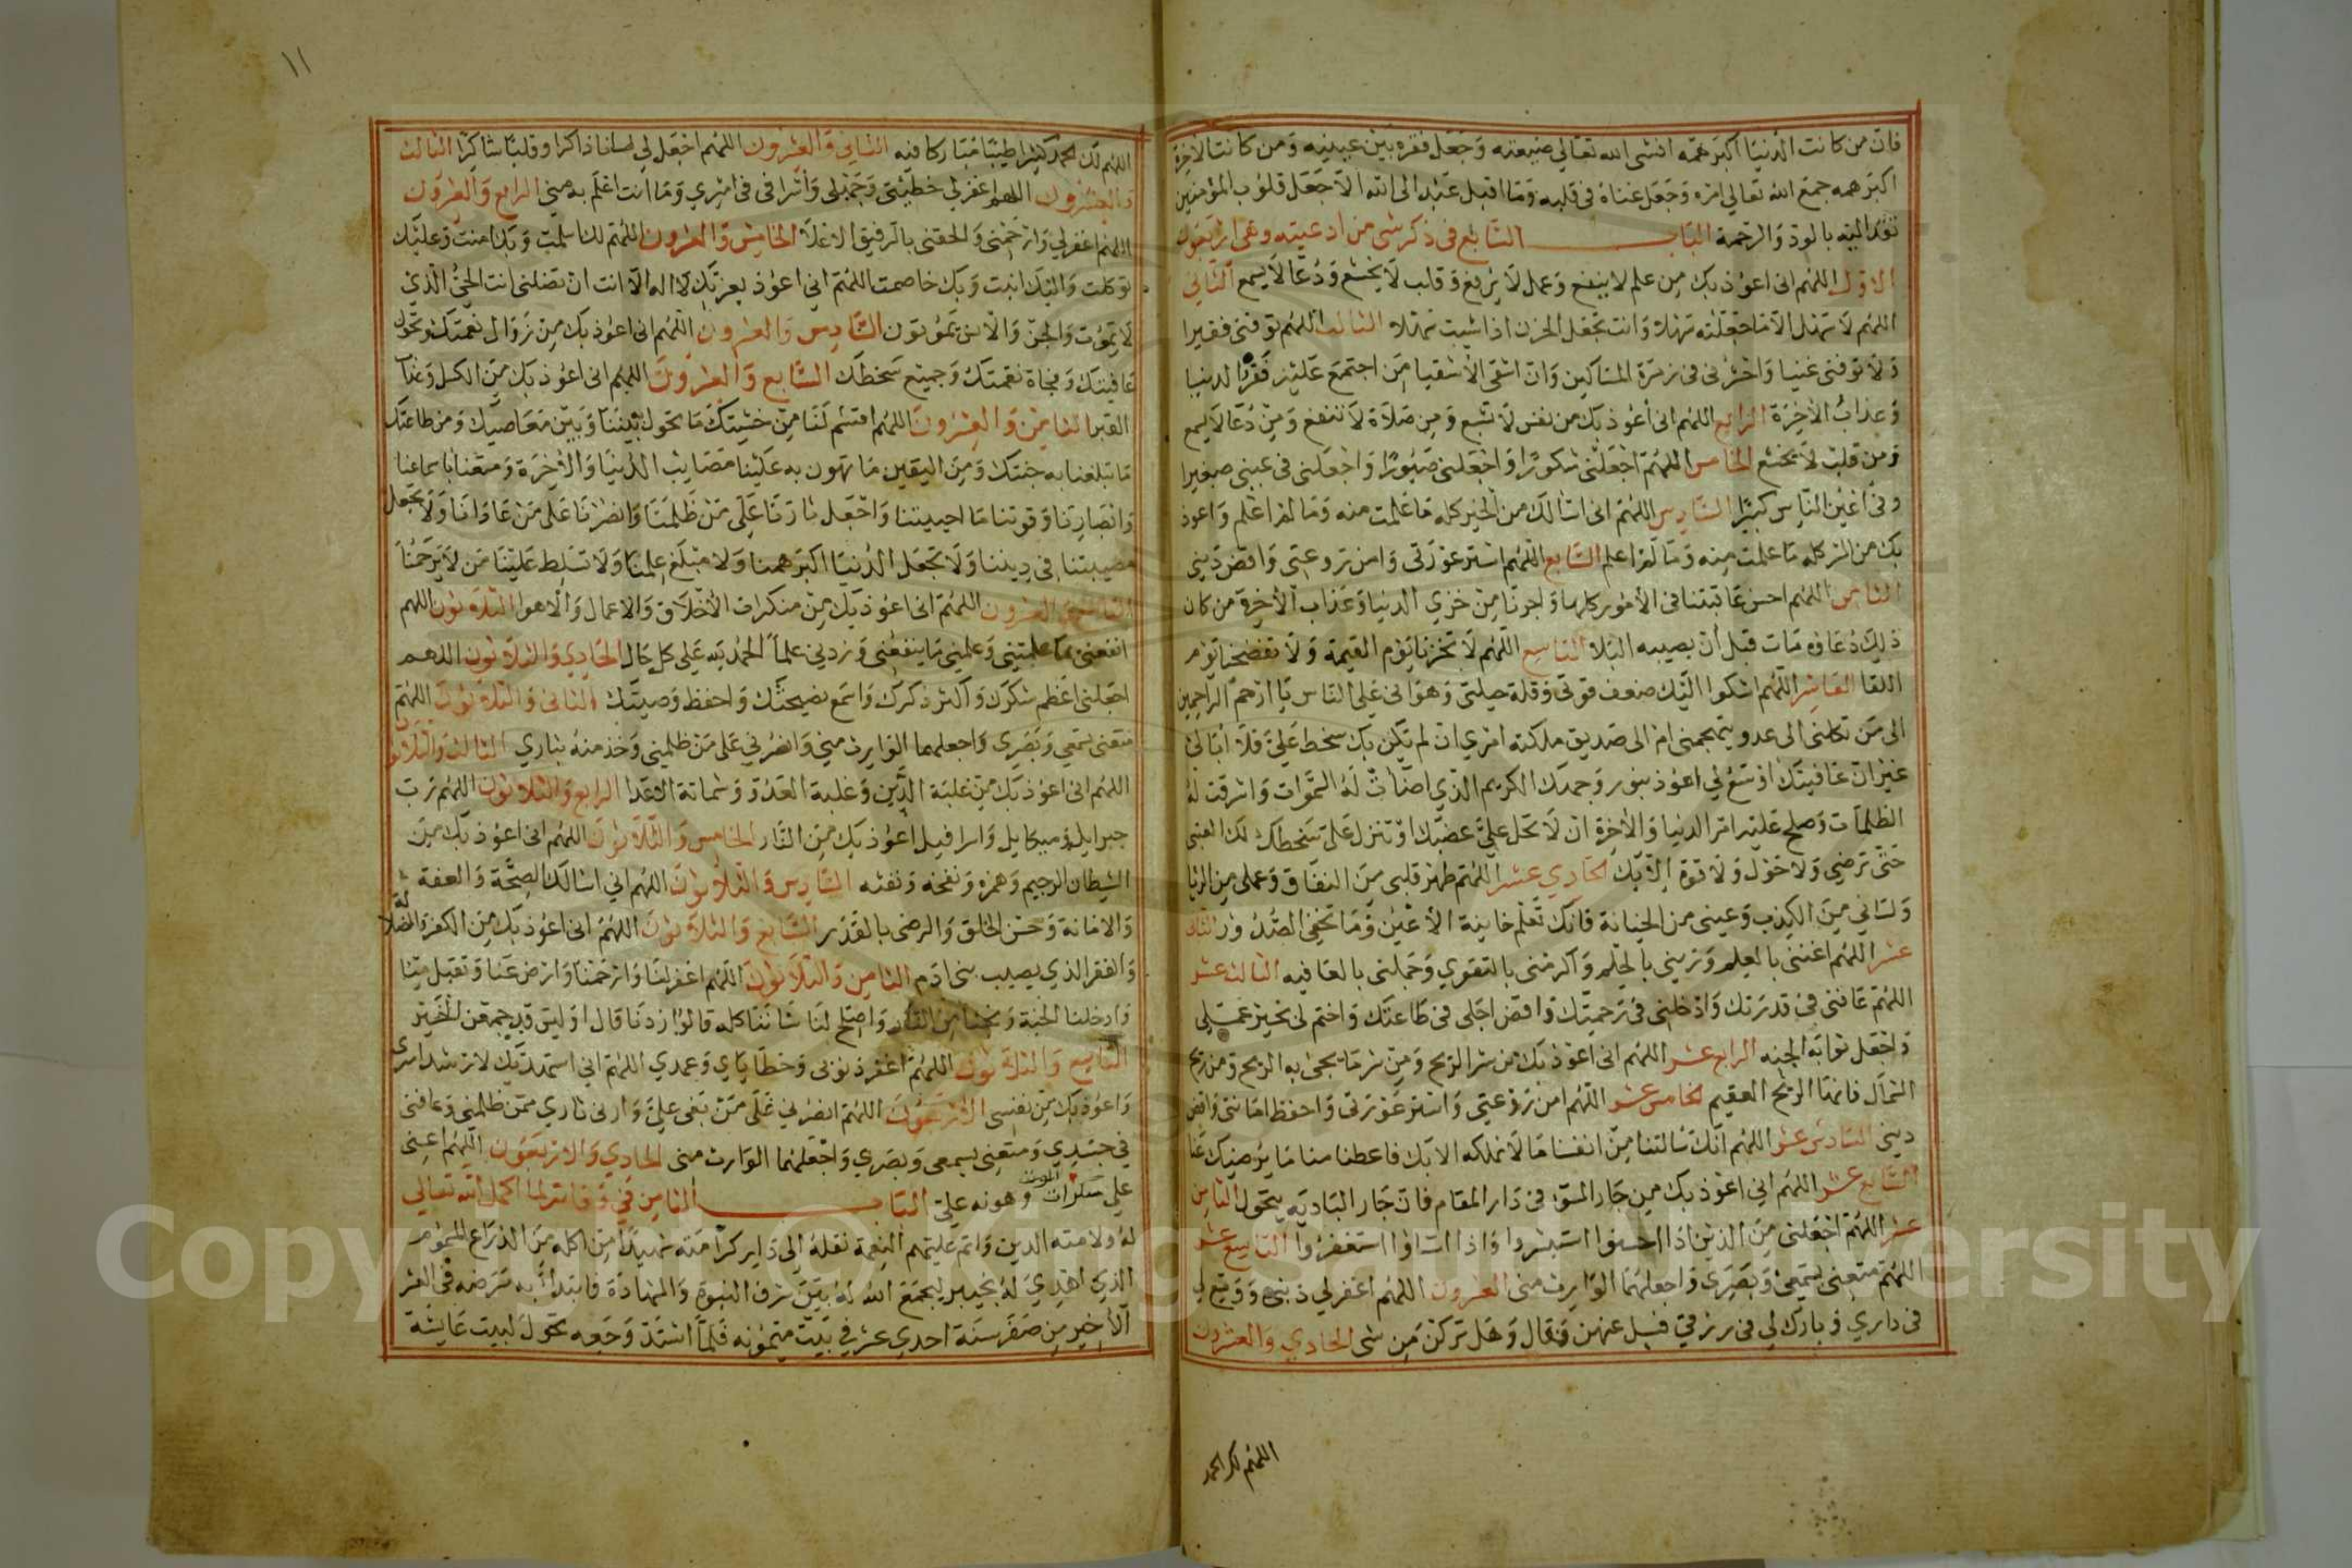 فان من كانت الدنيا اكبر همه افشى الله تعالى ضيعته وجعل فقره بين عينيه ومن كانت الاخرة
اكبر همه جمع الله تعالى امره وجعل غناه في قلبه وما اقبل عبد الى الله الا جعل قلوب المؤمنين
تفد اليه بالود والرحمة الباب السابع في ذكر شي من ادعيته وهي اربعون
الاول اللهم اني اعوذ بك من علم لا ينفع وعمل لا يرفع وقلب لا يخشع ودعا لا يسمع الثاني
اللهم لا سهل الا ما جعلته سهلا وانت تجعل الحزن اذا شيت سهلا الثالث اللهم توفني فقيرا
ولا توفني غنيا واحشرني في زمرة المساكين وان اشقى الاشقيا من اجتمع عليه فقر الدنيا
وعذاب الاخرة الرابع اللهم اني اعوذ بك من نفس لا تشبع ومن صلاة لا تنفع ومن دعا لا يسمع
ومن قلب لا يخشع الخامس اللهم اجعلني شكورا واجعلني صبورا واجعلني في عيني صغيرا
وفي اعين الناس كبيرا السادس اللهم اني اسالك من الخير كله ما علمت منه وما لم اعلم واعوذ
بك من الشر كله ما علمت منه وما لم اعلم السابع اللهم استر عورتي وامن روعتي واقض ديني
الثامن اللهم احسن عاقبتنا في الامور كلها واجرنا من خزي الدنيا وعذاب الاخرة من كان
ذلك دعاوه مات قبل ان يصيبه البلا التاسع اللهم لا تخزنا يوم القيمة ولا تفضحنا يوم
اللقا العاشر اللهم اشكوا اليك ضعف قوتي وقلة حيلتي وهواني على الناس يا ارحم الراحمين
الى من تكلني الى عدو يتجهمني ام الى صديق ملكته امري ان لم يكن بك سخط علي فلا ابالي
غير ان عافيتك اوسع لي اعوذ بنور وجهك الكريم الذي اضات له السموات واشرقت له
الظلمات وصلح عليه امر الدنيا والاخرة ان لا تحل علي غضبك او تنزل علي سخطك لك العتبى
حتى ترضي ولا حول ولا قوة الا بك الحادي عشر اللهم طهر قلبي من النفاق وعملي من الريا
ولساني من الكذب وعيني من الخيانة فانك تعلم خاينة الاعين وما تخفي الصدور الثاني
عشر اللهم اغنني بالعلم وزيني بالحلم واكرمني بالتقوي وجملني بالعافيه الثالث عشر
اللهم عافني في قدرتك وادخلني في رحمتك واقض اجلي في طاعتك واختم لي بخير عملي
واجعل ثوابه الجنه الرابع عشر اللهم اني اعوذ بك من شر الريح ومن شر ما يجي به الريح ومن ريح
الشمال فانها الريح العقيم الخامس عشر اللهم امن روعتي واستر عورتي واحفظ امانتي واقض
ديني السادس عشر اللهم انك سالتنا من انفسنا ما لا نملكه الا بك فاعطنا منا ما يرضيك عنا
السابع عشر اللهم اني اعوذ بك من جار السؤ في دار المقام فان جار الباديه يتحول الثامن
عشر اللهم اجعلني من الذين اذا احسنوا استبشروا واذا اساوا استغفروا التاسع عشر
اللهم متعني بسمعي وبصري واجعلهما الوارث مني العشرون اللهم اغفر لي ذنبي ووسع لي
في داري وبارك لي في رزقي قيل عنهن فقال وهل تركن من شى الحادي والعشرون
اللهم لك الحمد
١١
اللهم لك الحمد كثيرا طيبا مباركا فيه الثاني والعشرون اللهم اجعل لي لسانا ذاكرا وقلبا شاكرا الثالث
والعشرون اللهم اغفر لي خطيئتي وجهلي واسرافي في امري وما انت اعلم به مني الرابع والعشرون
اللهم اغفر لي وارحمني والحقني بالرفيق الاعلا الخامس والعشرون اللهم لك اسلمت وبك امنت وعليك
توكلت واليك انبت وبك خاصمت اللهم اني اعوذ بعزتك لا اله الا انت ان تضلني انت الحي الذي
لا يموت والجن والانس يموتون السادس والعشرون اللهم اني اعوذ بك من زوال نعمتك وتحول
عافيتك وفجاة نقمتك وجميع سخطك السابع والعشرون اللهم اني اعوذ بك من الكسل وعذاب
القبر الثامن والعشرون اللهم اقسم لنا من خشيتك ما يحول بيننا وبين معاصيك ومن طاعتك
ما تبلغنا به جنتك ومن اليقين ما يهون به علينا مصايب الدنيا والاخرة ومتعنا باسماعنا
وابصارنا وقوتنا ما احييتنا واجعل ثارنا على من ظلمنا وانصرنا على من عادانا ولا تجعل
مصيبتنا في ديننا ولا تجعل الدنيا اكبر همنا ولا مبلغ علمنا ولا تسلط علينا من لا يرحمنا
التاسع والعشرون اللهم اني اعوذ بك من منكرات الاخلاق والاعمال والاهوا الثلاثون اللهم
انفعني بما علمتني وعلمني ما ينفعني وزدني علما الحمد لله على كل حال الحادي والثلاثون اللهم
اجعلني اعظم شكرك واكثر ذكرك واسمع نصيحتك واحفظ وصيتك الثاني والثلاثون اللهم
متعني بسمعي وبصري واجعلهما الوارث مني وانصرني على من ظلمني وخذ منه بثاري الثالث والثلاثون
اللهم اني اعوذ بك من غلبة الدين وغلبة العدو وشماتة الاعدا الرابع والثلاثون اللهم رب
جبرايل وميكايل واسرافيل اعوذ بك من النار الخامس والثلاثون اللهم اني اعوذ بك من
الشيطان الرجيم وهمزه ونفخه ونفثه السادس والثلاثون اللهم اني اسالك الصحة والعفة
والامانة وحسن الخلق والرضى بالقدر السابع والثلاثون اللهم اني اعوذ بك من الكفر والضلالة
والفقر الذي يصيب بني ادم الثامن والثلاثون اللهم اغفر لنا وارحمنا وارض عنا وتقبل منا
وادخلنا الجنة ونجنا من النار واصلح لنا شاننا كله قالوا زدنا قال اوليس قد جمعن الخير
التاسع والثلاثون اللهم اغفر ذنوبي وخطاياي وعمدي اللهم اني استهديك لارشد امري
واعوذ بك من نفسي الاربعون اللهم انصرني على من بغى علي وارني ثاري ممن ظلمني وعافني
في جسدي ومتعني بسمعي وبصري واجعلهما الوارث مني الحادي والاربعون اللهم اعني
على سكرات الموت وهونه علي الباب الثامن في وفاته لما اكمل الله تعالى
له ولامته الدين واتم عليهم النعمة نقله الى دار كرامته شهيدا من اكله من الذراع المسموم
الذي اهدي له بخيبر ليجمع الله له بين شرف النبوة والشهادة فابتدأ به مرضه في العشر
الاخير من صفر سنة احدي عشر في بيت ميمونه فلما اشتد وجعه تحول لبيت عايشة
Copyright © King Saud University